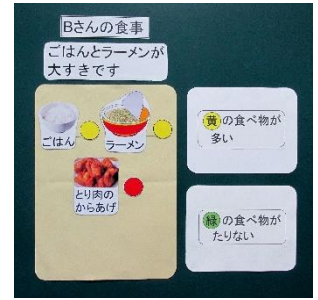 Bさんの食事
ごはんとラーメンが
大すきです
ごはん
ラーメン
とり肉の
からあげ
黄の食べ物が
多い
緑の食べ物が
たりない